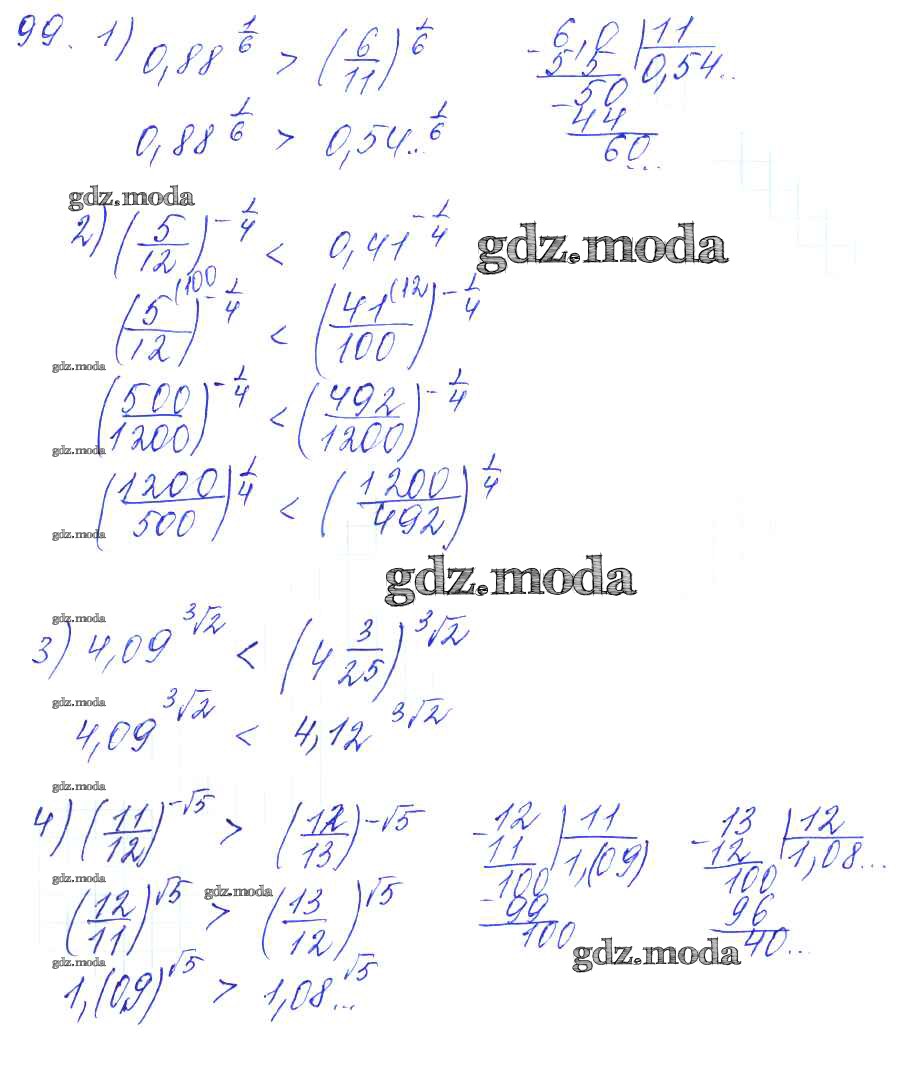 99. 1) 0,88^(1/6) > (6/11)^(1/6)
0,88^(1/6) > 0,54...^(1/6)
6,0 | 11
- 55 0,54..
50
- 44
60...
gdz.moda
2) (5/12)^(-1/4) < 0,41^(-1/4)
gdz.moda
(5^(100/12)^(-1/4) < (41^(12/100)^(-1/4)
gdz.moda
(500/1200)^(-1/4) < (492/1200)^(-1/4)
gdz.moda
(1200/500)^(1/4) < (1200/492)^(1/4)
gdz.moda
gdz.moda
gdz.moda
3) 4,09^(3√2) < (4 3/25)^(3√2)
gdz.moda
4,09^(3√2) < 4,12^(3√2)
gdz.moda
4) (11/12)^(-√5) > (12/13)^(-√5)
- 12 | 11
11 1,(09)
100
- 99
100
- 13 | 12
12 1,08...
100
96
40...
gdz.moda
gdz.moda
(12/11)^(√5) > (13/12)^(√5)
gdz.moda
gdz.moda
1,(09)^(√5) > 1,08...^(√5)